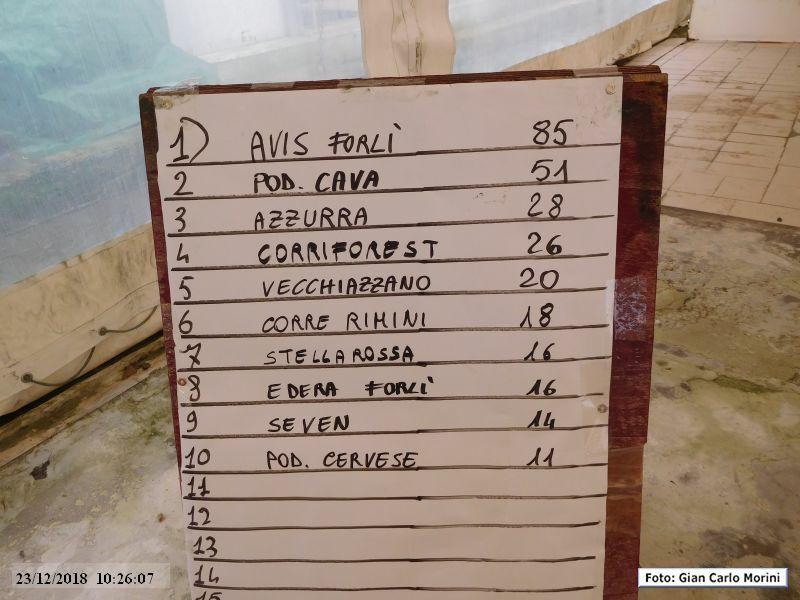 1) AVIS FORLÌ 85
2 POD. CAVA 51
3 AZZURRA 28
4 CORRIFOREST 26
5 VECCHIAZZANO 20
6 CORRE RIMINI 18
7 STELLA ROSSA 16
8 EDERA FORLÌ 16
9 SEVEN 14
10 POD. CERVESE 11
11
12
13
14
15
23/12/2018 10:26:07
Foto: Gian Carlo Morini